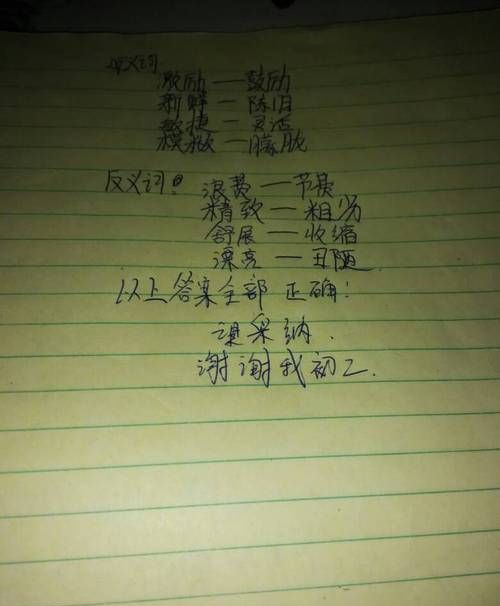 近义词
激励一鼓励
新鲜一陈旧
敏捷一灵活
模糊一朦胧
反义词:
浪费一节俭
精致一粗劣
舒展一收缩
漂亮一丑陋
以上答案全部正确!
望采纳.
谢谢我初二.